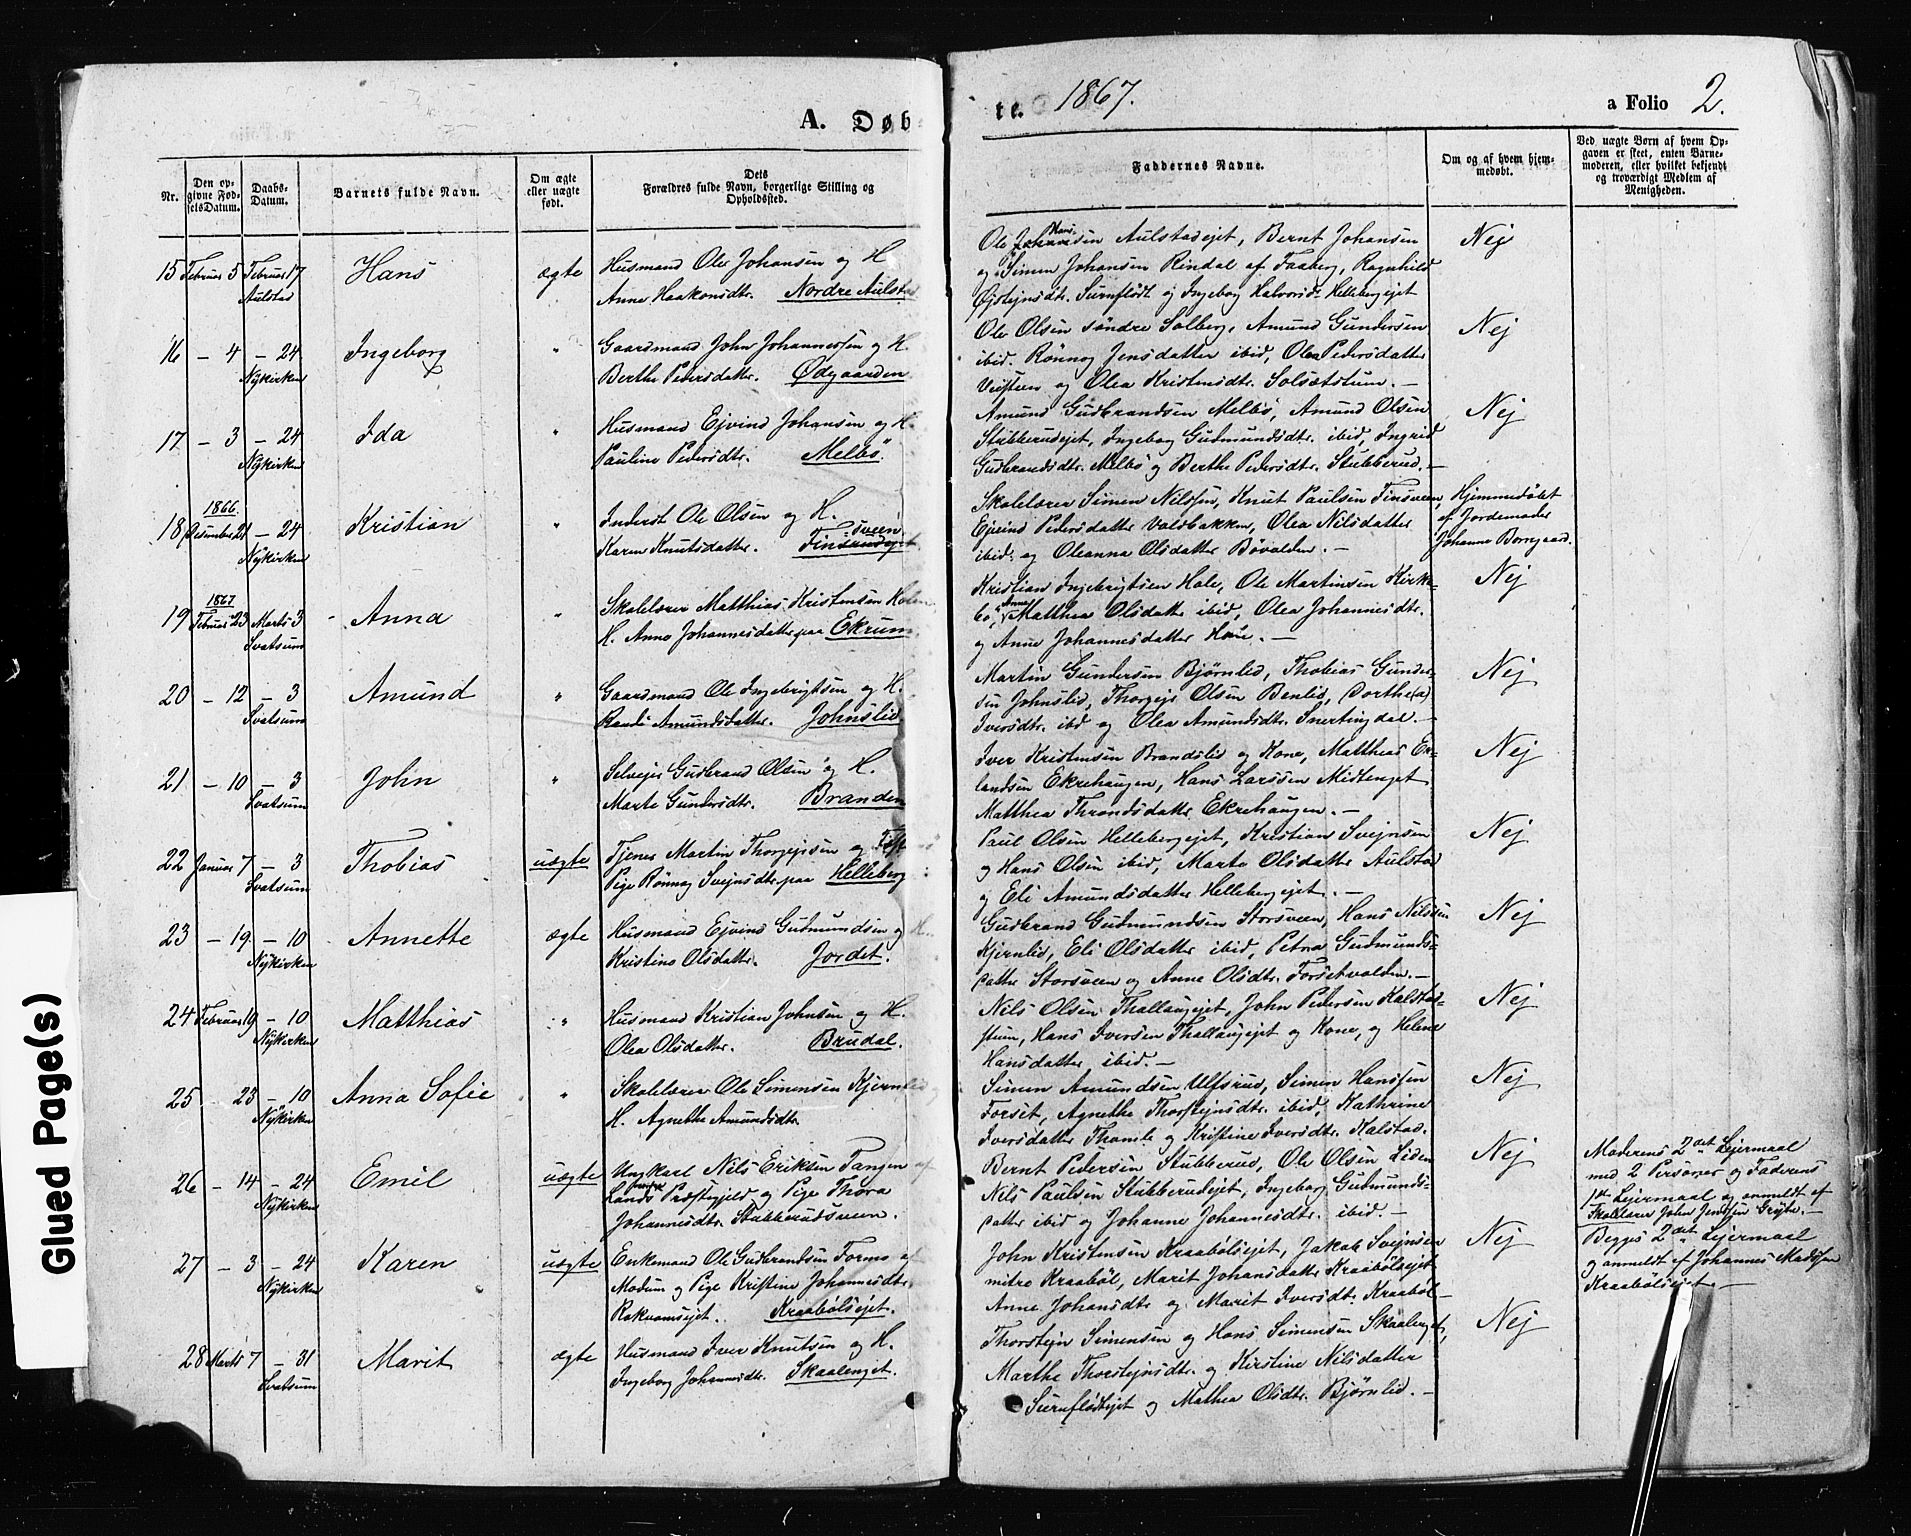 A. Døb-
te. 1867.
a Folio 2.
Nr.
Den op-
givne Fød-
selsDatum.
Daabs-
Datum.
Barnets fulde Navn.
Om ægte
eller uægte
født.
Dets
Forældres fulde Navn, borgerlige Stilling og
Opholdssted.
Faddernes Navne.
Om og af hvem hjem-
medøbt.
Ved uægte Børn af hvem Op-
gaven er skeet, enten Barne-
moderen, eller hvilket bekjendt
og troværdigt Medlem af
Menigheden.
15 Februar 5 Februar 17 Hans ægte Husmand Ole Johansen og H.
Aulstad Anne Haakonsdtr. Nordre Aulstad
Ole Hans Johansen Aulstadejet, Bernt Johansen Nej
og Simen Johansen Rindal af Faaberg, Ragnhild
Øjstejnsdtr. Surnflødt og Ingebog Halvorsdr. Hellebergejet
16 – 4 – 24 Ingeborg " Gaardmand John Johannessen og H.
Nykirken Berthe Pedersdatter. Ødegaarden
Ole Olsen søndre Solberg, Amund Gundersen Nej
ibid. Rønnog Jensdatter ibid, Olea Pedersdatter
og Olea Kristensdtr. Solsætstuen. –
17 – 3 – 24 Ida " Husmand Ejvind Johansen og H.
Nykirken Pauline Pedersdtr. Melbö.
Amund Gudbrandsen Melbö, Amund Olsen Nej
Stubberudejet, Ingebog Gudmundsdtr. ibid, Ingrid
Gudbrandsdtr. Melbö og Berthe Pedersdtr. Stubberud. –
1866.
18 Desember 21 – 24 Kristian " Inderst Ole Olsen og H.
Nykirken Karen Knutsdatter. Finsrudejet sveen
Skolelærer Simen Nilssen, Knut Paulsen Finsveen, Hjemmedöbt
Ejvind Pedersdatter Valdbakken, Olea Nilsdatter af Jordemoder
ibid. og Oleanna Olsdatter Bövalden. – Johanne Borregaard.
1867
19 Februar 23 Marts 3 Anna " Skolelærer Matthias Kristensen
Svatsum H. Anne Johannesdatter paa Ekrum
Kristian Ingebrigtsen Hole, Ole Martinsen Kirke- Nej
bö, Anne Matthea Olsdatter ibid, Olea Johannesdtr.
og Anne Johannesdatter
20 – 12 – 3 Amund " Gaardmand Ole Ingebrigtsen og H.
Svatsum Randi Amundsdatter. Johnslid
Martin Gundersen Bjørnlid, Thobias Gunder- Nej
sen Johnslid, Thorgejr Olsen Benlid, Dorthe(a)
Iversdtr. ibd og Olea Amundsdtr. Snertingdal. –
21 – 10 – 3 John " Selvejer Gudbrand Olsen og H.
Svatsum Marte Gundersdtr. Branden
Iver Kristensen Brandslid og Kone, Matthias Er- Nej
landsen Ekrehaugen, Hans Larssen Midtenget
Matthea Throndsdatter Ekrehaugen. –
22 Januar 7 – 3 Thobias uægte Tjener Martin Thorgejrsen og
Svatsum Pige Rønnog Svejnsdtr. paa Helleberg
Paul Olsen Hellebergejet, Kristian Svejnsen Nej
og Hans Olsen ibid, Marte Olsdatter Aulstad
og Eli Amundsdatter Hellebergejet. –
23 – 19 – 10 Annette ægte Husmand Ejvind Gudmundsen og H.
Nykirken Kristine Olsdatter. Jordet.
Gudbrand Gudmundsen Storsveen, Hans Nilssen Nej
Kjernlid, Eli Olsdatter ibid, Petra Gudmunds-
datter Storsveen og Anne Olsdtr. Forsetvolden. –
24 Februar 19 – 10 Matthias " Husmand Kristian Johnsen og H.
Nykirken Olea Olsdatter. Brudal.
Nils Olsen Thallaugejet, John Pedersen Kalstad- Nej
stuen, Hans Iversen Thallaugejet og Kone, og Helene
Hansdatter ibid. –
25 – 23 – 10 Anna Sofie " Skolelærer Ole Simensen Kjernlid
Nykirken H. Agnethe Amundsdtr.
Simen Amundsen Ulfsrud, Simen Hanssen Nej
Forset, Agnethe Thorstejnsdtr. ibid, Kathrine
Iversdatter og Kristine Iversdtr. Kalstad.
26 – 14 – 24 Emil uægte Ungkarl Nils Eriksen Tangen af
Nykirken Lands Præstegjeld og Pige Thora
Johannesdtr. Stubberudsveen.
Bernt Pedersen Stubberud, Ole Olsen Liden Nej
Nils Paulsen Stubberudejet, Ingebog Gudmunds-
datter ibid og Johanne Johannesdtr. ibid. –
Moderens 2det Lejermaal
med 2 Personer og Faderens
1ste Lejermaal og anmeldt af
Skolelærer John Jenssen Gryte. –
27 – 3 – 24 Karen uægte Enkemand Ole Gudbrandsen Formo af
Nykirken Modum og Pige Kristine Johannesdtr.
Rokvamsejet. Kraabölsejet.
John Kristensen Kraabölsejet, Jakob Svejnsen Nej
mitre Kraaböl, Marit Johansdatter Kraabölsejet
Anne Johansdtr. og Marit Iversdtr. Kraaböl –
Begges 2det Lejermaal
og anmeldt af Johannes Madssen
Kraabölsejet. –
28 Marts 7 – 31 Marit ægte Husmand Iver Knutsen og H.
Svatsum Ingebog Johannesdtr. Skaalenget.
Thorstejn Simensen og Hans Simensen Skaalenget, Nej
Marthe Thorstejnsdtr. og Kirstine Nilsdatter
Surnflödtejet og Mathea Olsdtr. Bjørnlid. –
Glued Page(s)